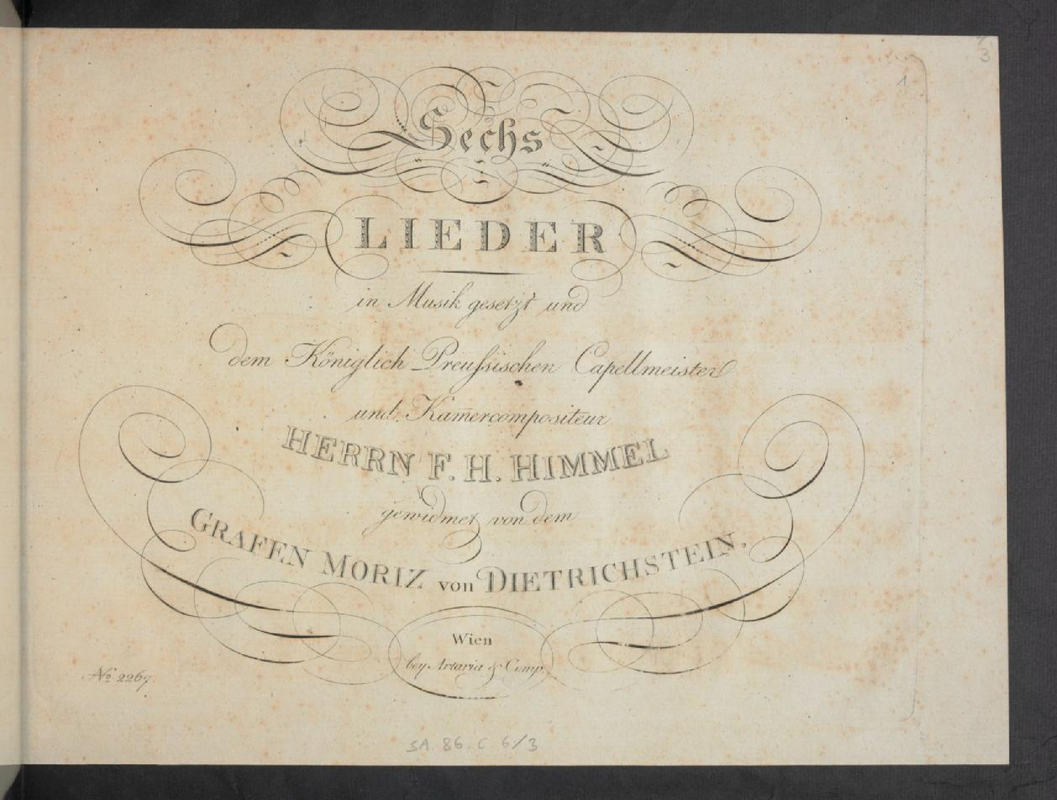 3
1
Sechs
LIEDER
in Musik gesetzt und
dem Königlich Preußischen Capellmeister
und Kam̅ercompositeur
HERRN F. H. HIMMEL
gewidmet von dem
GRAFEN MORIZ von DIETRICHSTEIN.
Wien
bey Artaria & Comp.
No 2269.
SA. 86. C 6/3